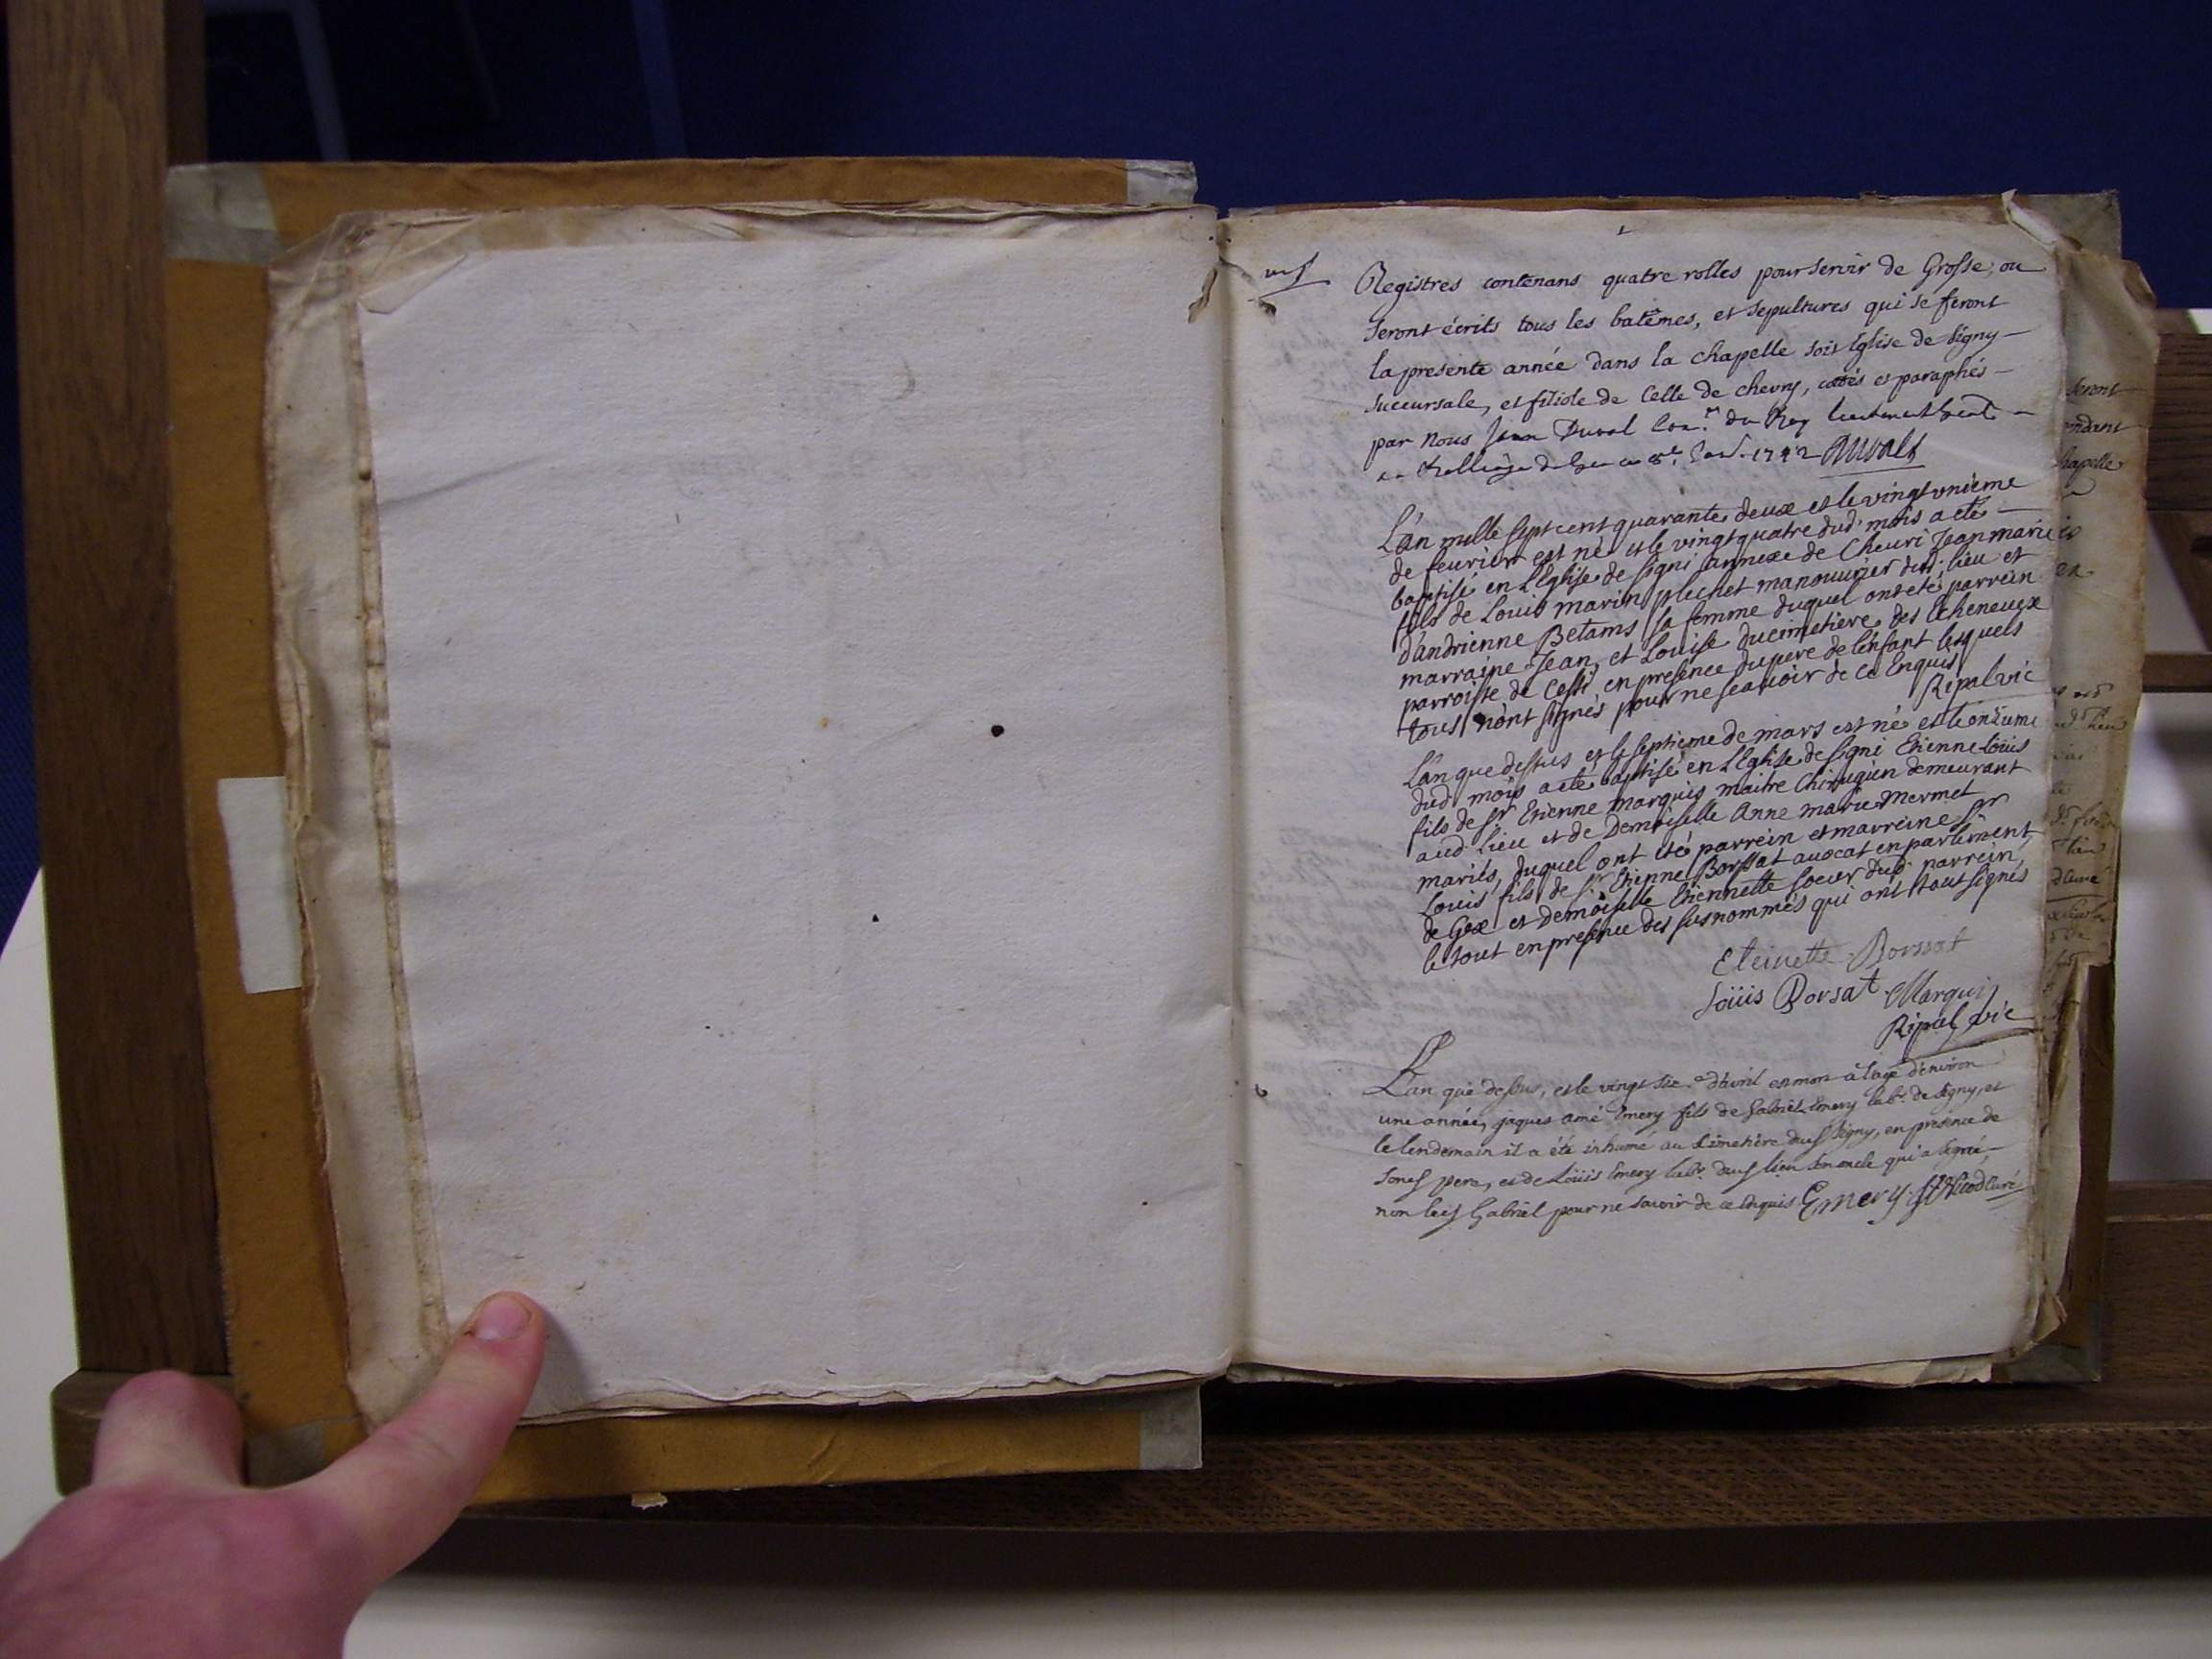 1
Registres contenans quatre rolles pour servir de Grosse, ou
seront écrits tous les batêmes, et sepultures qui se feront
la presente année dans la chapelle soit Eglise de signy
succursale, et filiole de Celle de chevry, cottés et paraphés
par Nous Jean Duval Con.er du Roy lieutenant
1742 Duval
L'an mille sept cent quarante deux et le vingt unieme
de feurier est né et le vingt quatre dud. mois a eté
baptisé en L'Eglise de signi annexe de Cheuri Jean marie
fils de Louis marin plechet manouurier dud. lieu et
d'andrienne Betams sa femme duquel ont eté parrein
marraine Jean, et Louise ducimetiere des Echeneuex
parroisse de Cessi, en presence du pere de l'enfant lesquels
tous n'ont signés pour ne scauoir de ce Enquis
Ripal vic
L'an que dessus et le septieme de mars est né et le onzieme
dud mois a eté baptisé en L'Eglise de signi Etienne Loüis
fils de Sr Etienne marquis maitre Chirugien demeurant
aud. Lieu et de Demoiselle Anne marie mermet
mariés, duquel ont eté parrein et marreine Sr
Louis fils de Sr. Etienne Borssat auocat en parlement,
de Gex et demoiselle Etiennette soeur dud. parrein,
le tout en presence des susnommés qui ont tout signés
Eteinette Borssat
Loüis Borsat Marquis
Ripal vic
L'an que dessus, et le vingt six.e d'avril est mort à l'age d'environ
une année, jaques amé Emery fils de Gabriel Emery lab.r de signy, et
le lendemain il a été inhumé au Cimetière dud signy, en présence de
sond pere, et de Loüis Emery lab.r dud lieu son oncle qui a signé,
non led Gabriel pour ne savoir de ce enquis Emery curé
seront
chapelle